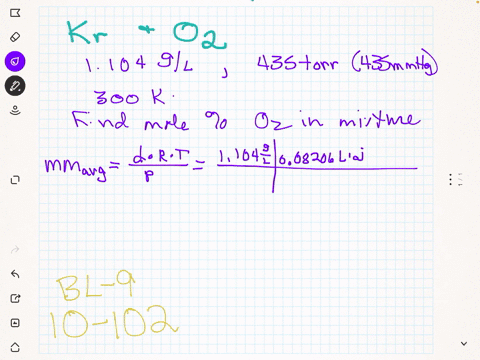 Kr + O2
1.104 g/L , 435 torr (435 mmHg)
300 K.
Find mole % O2 in mixture
MMavg = d•R•T/P = 1.104 g/L | 0.08206 L•a
BL-9
10-102